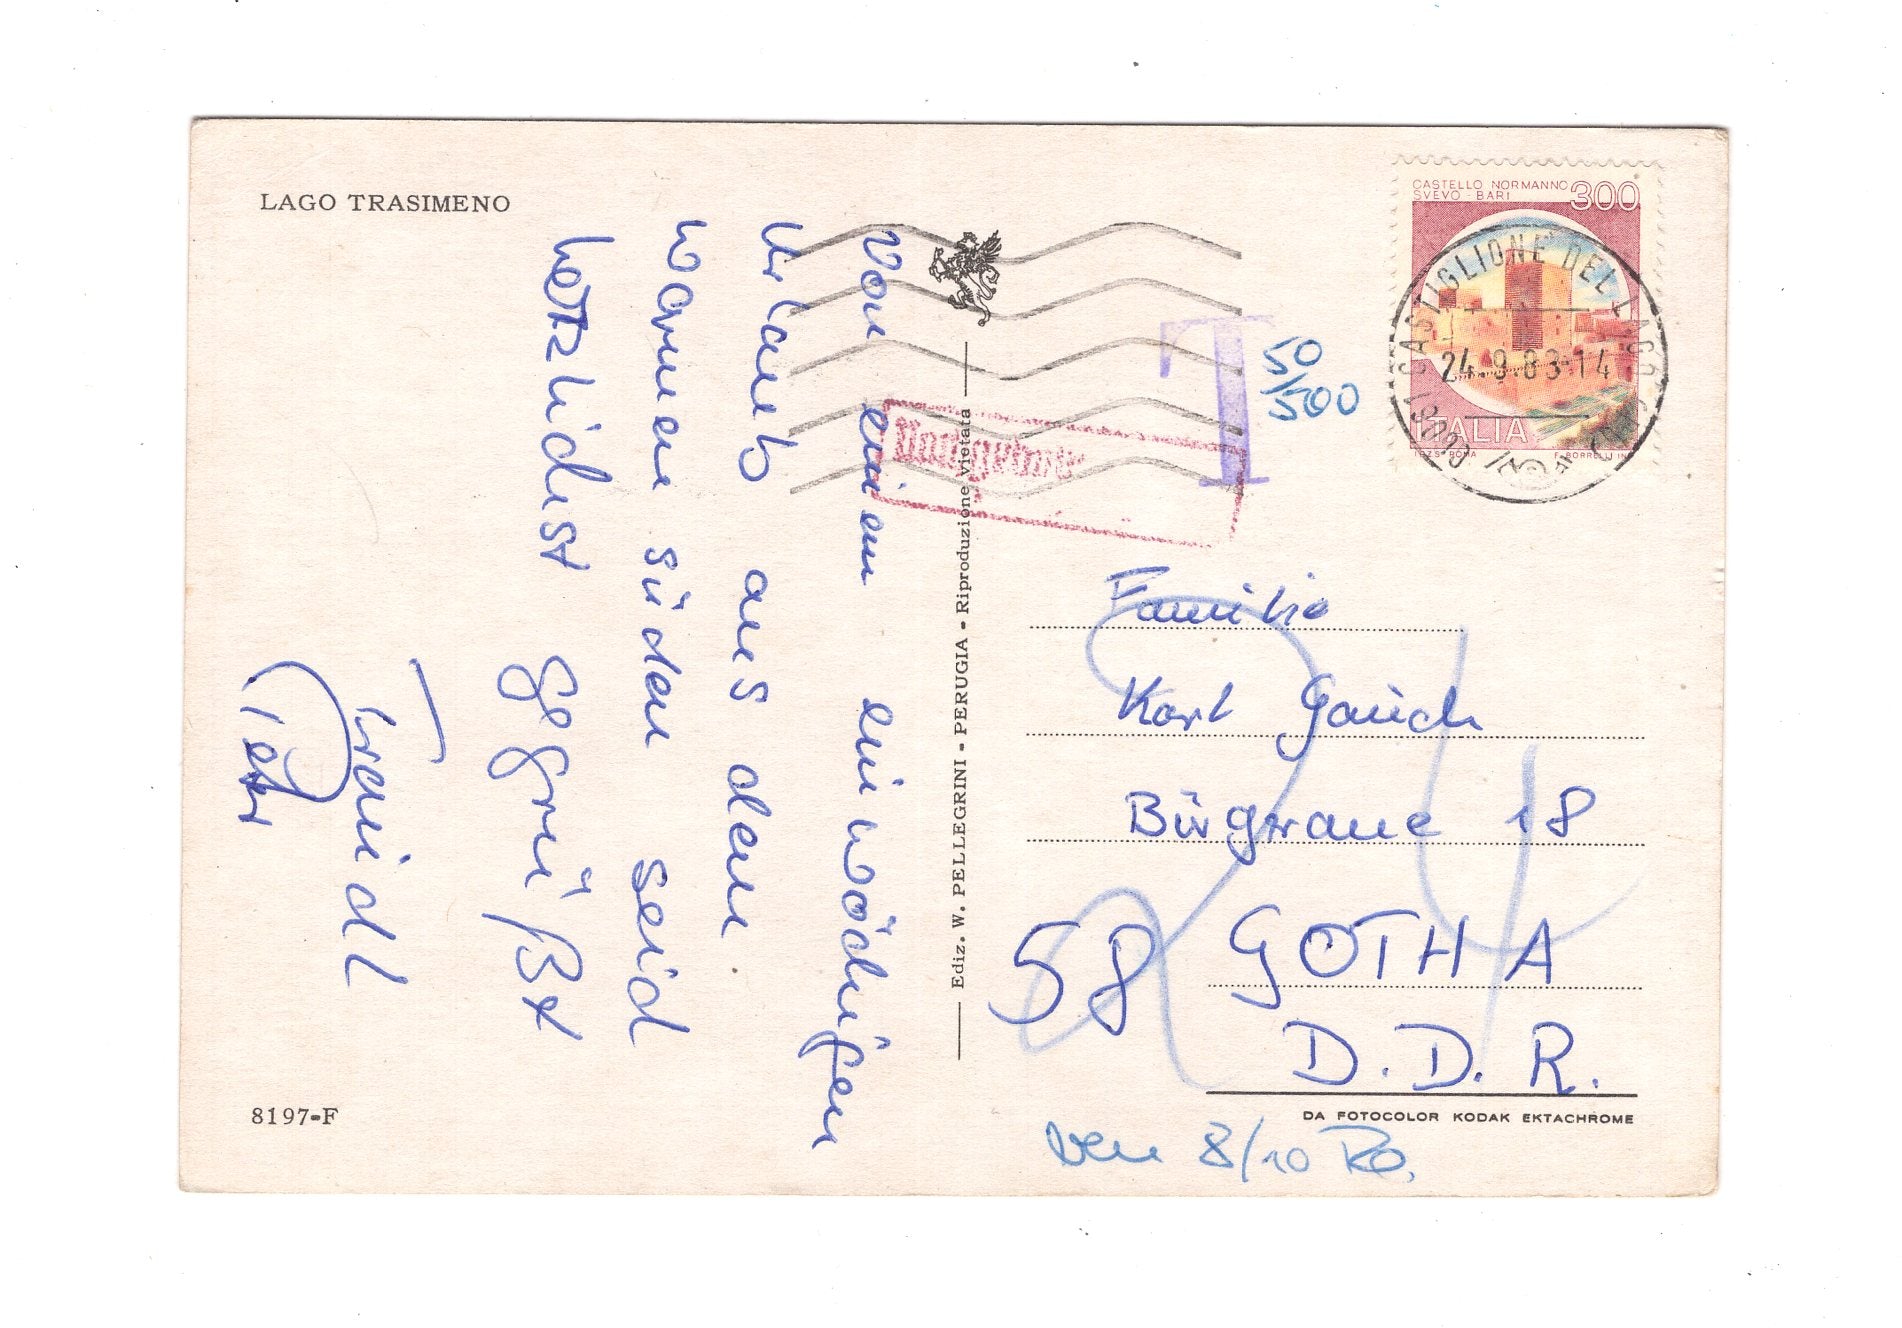 LAGO TRASIMENO
Von einem einwöchigen
Urlaub aus dem
warmen süden seid
herzlichst gegrüßt
Traudl
Peter
8197-F
Ediz. W. PELLEGRINI - PERUGIA - Riproduzione vietata
CASTELLO NORMANNO
SVEVO - BARI
300
ITALIA
I.P.Z.S. ROMA
E. BORRELLI INC.
06061 CASTIGLIONE DEL LAGO
24.9.83.14
T
50
500
Nachgebühr
Familie
Karl Gauch
Bürgeraue 18
58 GOTHA
D.D.R.
DA FOTOCOLOR KODAK EKTACHROME
8/10